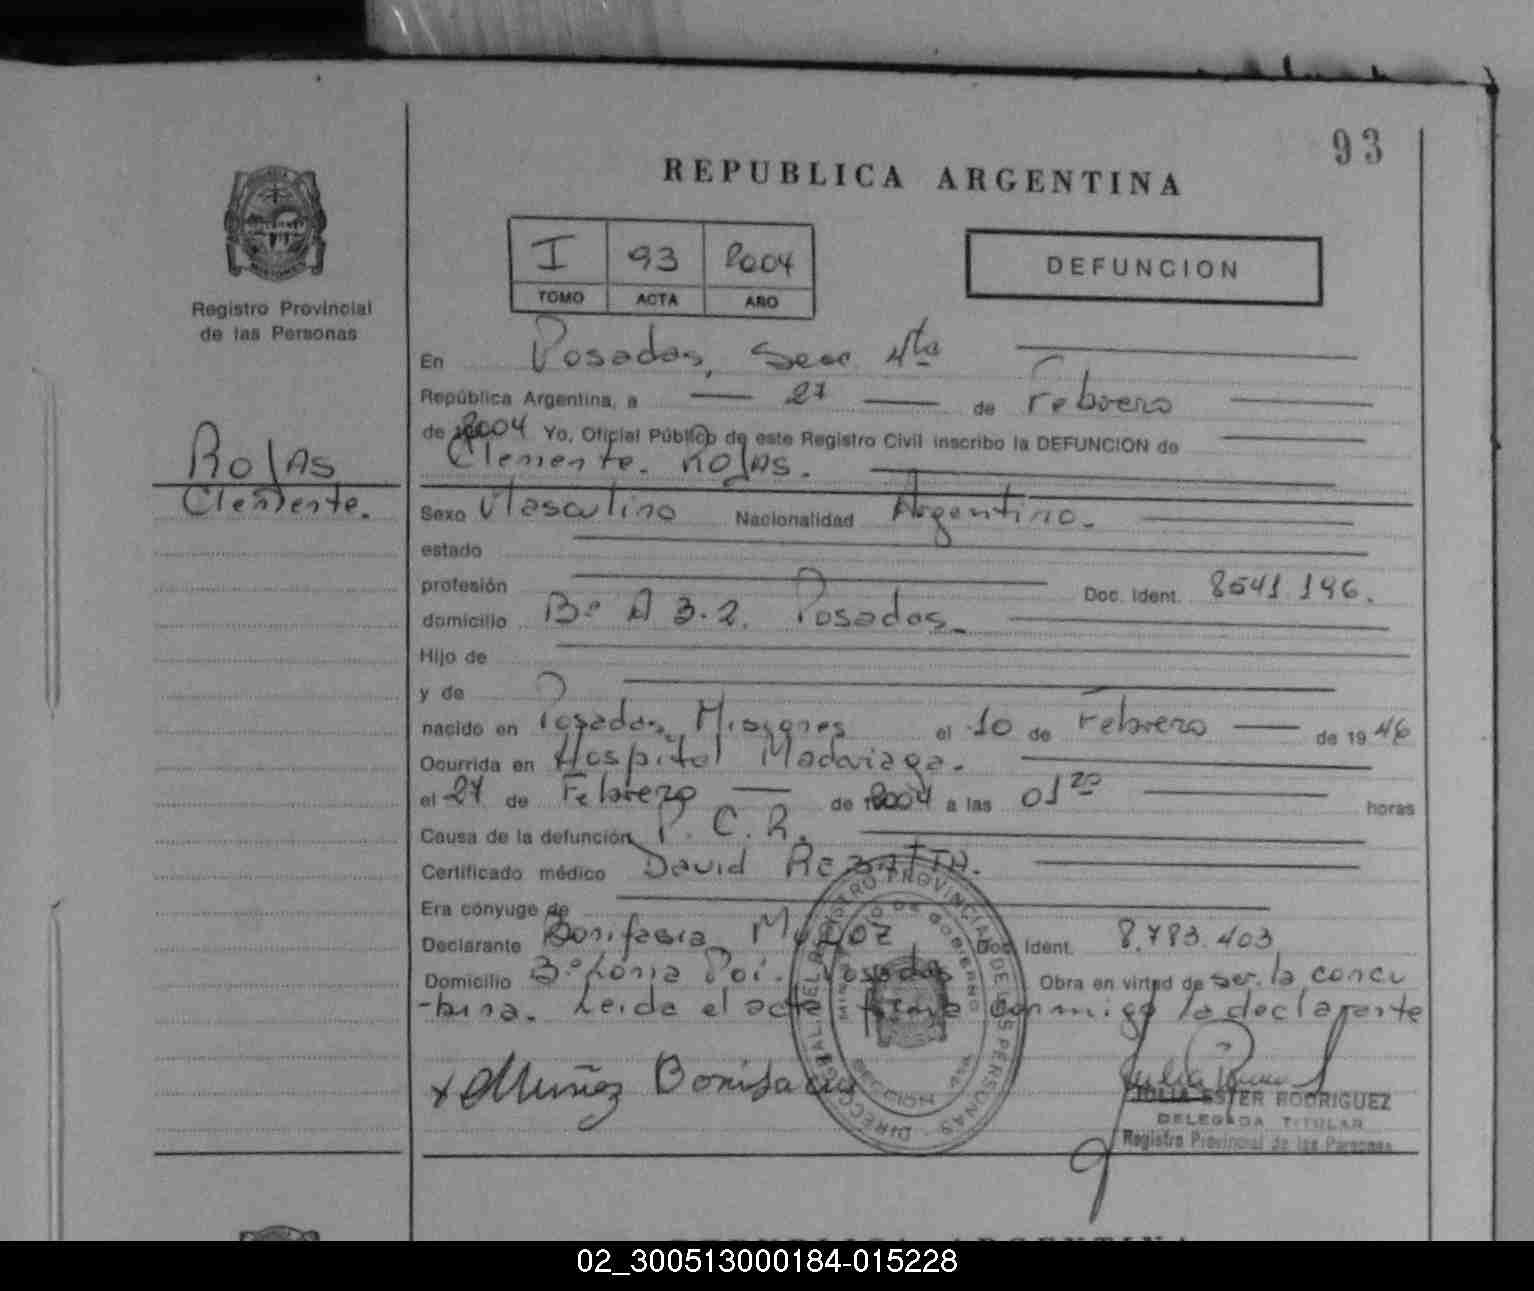 93
REPUBLICA ARGENTINA
I 93 2004
TOMO ACTA AÑO
DEFUNCION
Registro Provincial
de las Personas
Rojas
Clemente.
En Posadas, Secc 4ta
República Argentina, a 27 de Febrero
de 2004 Yo, Oficial Público de este Registro Civil inscribo la DEFUNCION de
Clemente. Rojas.
Sexo Masculino Nacionalidad Argentino.
estado
profesión Doc. Ident. 8541.196.
domicilio Bº A 3-2. Posadas.
Hijo de
y de
nacido en Posadas, Misiones el 10 de Febrero de 1946
Ocurrida en Hospital Madariaga.
el 27 de Febrero de 2004 a las 01 horas
Causa de la defunción P. C. R.
Certificado médico David
Era cónyuge de
Declarante Bonifasia Muñoz Doc. Ident. 8.783.403
Domicilio Bº Loma Poi. Posadas Obra en virtud de ser. la concu
-bina. Leida el acta firma conmigo la declarante
x Muñoz Bonifacia
DIRECCION GRAL. DEL REGISTRO PROVINCIAL DE LAS PERSONAS
MINISTERIO DE GOBIERNO
JULIA ESTER RODRIGUEZ
DELEGADA TITULAR
Registro Provincial de las Personas
REPUBLICA ARGENTINA
02_300513000184-015228